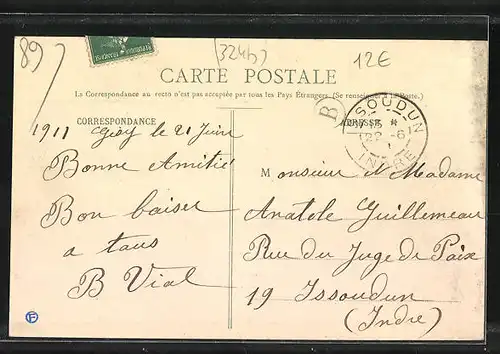 89
324b
12€
CARTE POSTALE
La Correspondance au recto n'est pas acceptée par tous les Pays Étrangers. (Se renseigner à la Poste.)
CORRESPONDANCE
1911 le 21 Juin
Bonne Amitié
Bon baiser
a tous
B Vial
B
ADRESSE
ISSOUDUN
22 -6
INDRE
Monsieur et Madame
Anatole Guillemeau
Rue du Juge de Paix
19 Issoudun
(Indre)